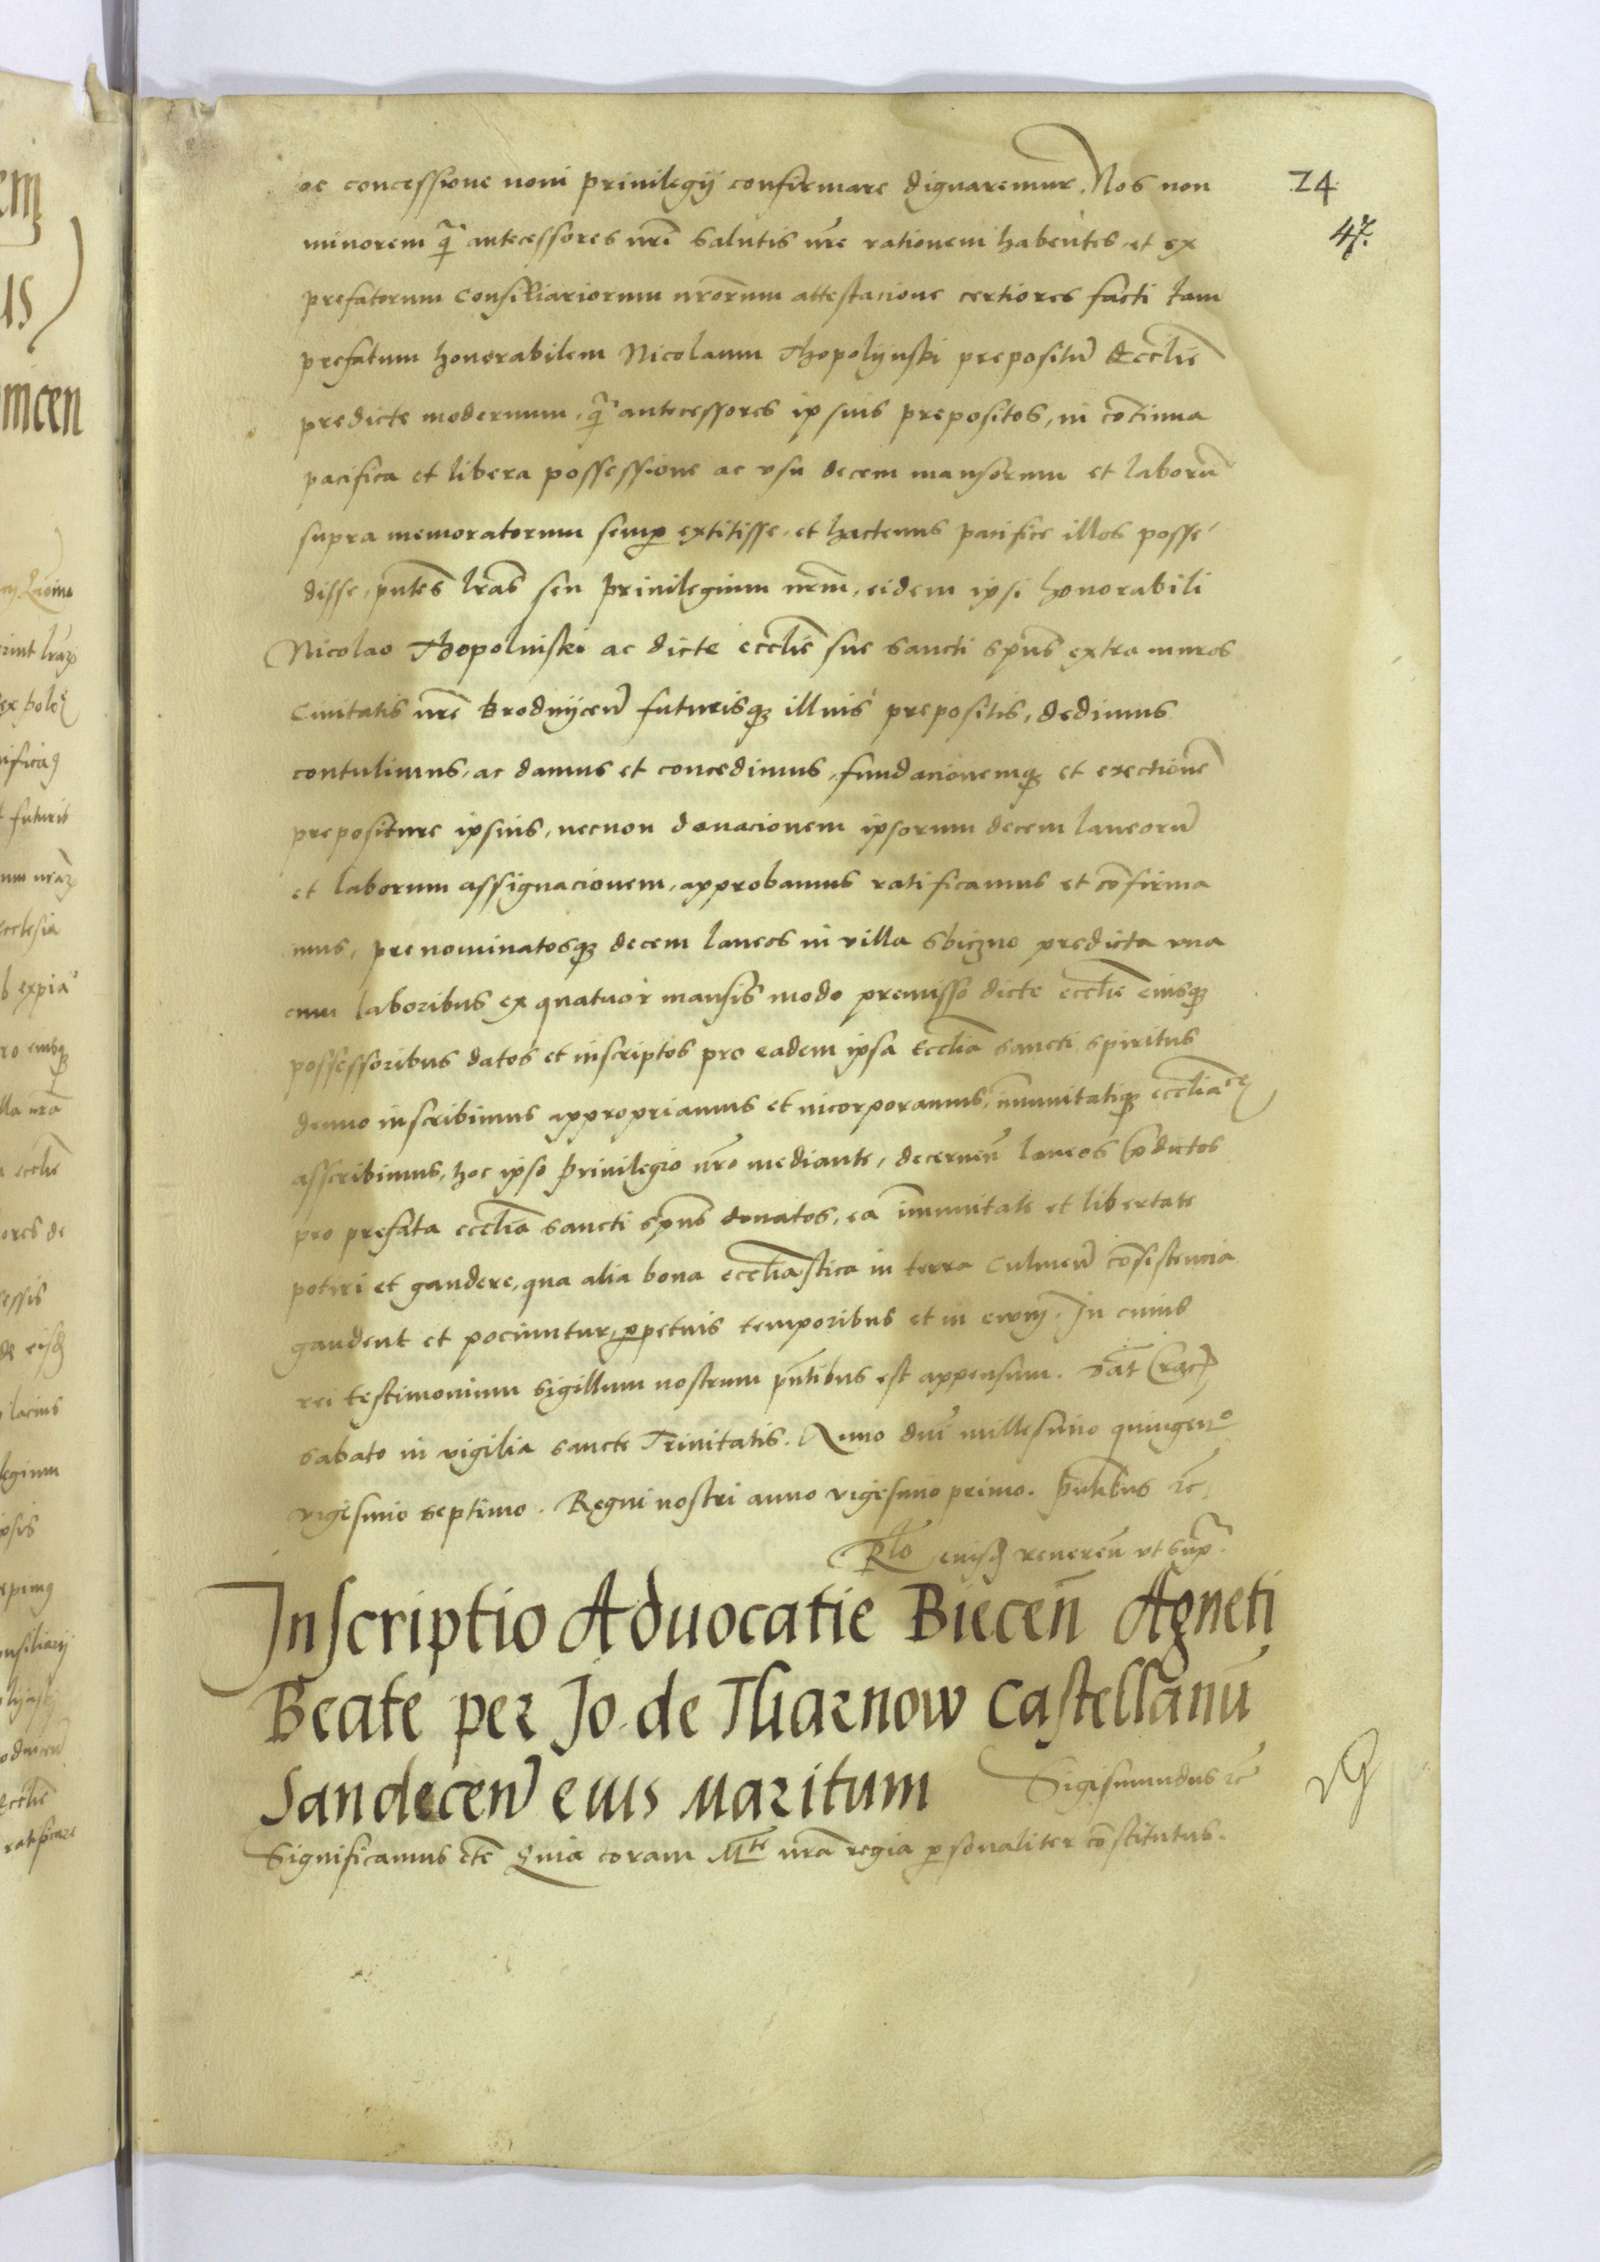 ac concessione novi privilegij confirmare dignaremur. Nos non
24
47.
minorem q̃ antecessores nr̃i salutis nr̃e rationem habentes et ex
prefatorum Consiliariorum nrõrum attestacione certiores facti tam
prefatum honorabilem Nicolaum Thopolynski prepositũ Ecclie
predicte modernum, q̃ antecessores ipsius prepositos, in cõtinua
pacifica et libera possessione ac vsu decem mansorum et laborũ
supra memoratorum semp extitisse, et hactenus pacifice illos posse
disse, pñtes lrãs seu privilegium nr̃m, eidem ipsi honorabili
Nicolao Thopolniski ac dicte ecclie sue sancti spũs extra muros
Civitatis nr̃e Brodnycen̄ futurisq; illius prepositis, dedimus
contulimus, ac damus et concedimus, fundacionemq; et erectionẽ
prepositure ipsius, necnon donacionem ipsorum decem laneorũ
et laborum assignacionem, approbamus ratificamus et cõfirma
mus, prenominatosq; decem laneos in villa sbiczno predicta vna
cum laboribus ex quatuor mansis modo premisso dicte ecclie eiusq;
possessoribus datos et inscriptos pro eadem ipsa Ecclia sancti spiritus
denuo inscribimus appropriamus et incorporamus, im̃unitatiq; eccliace
asscribimus, hoc ipso privilegio nr̃o mediante, decernen̄ laneos p̃dictos
pro prefata ecclia sancti spũs donatos, ea im̃unitate et libertate
potiri et gaudere, qua alia bona eccliastica in terra Culmen̄ cõsistencia
gaudent et pociuntur, ppetuis temporibus et in evum. In cuius
rei testimonium sigillum nostrum pñtibus est appensum. Dat̃ Crac
sabato in vigilia sancte Trinitatis. Anno dñi millesimo quingenᵒ
vigesimo septimo. Regni nostri anno vigesimo primo. Pñtibus ꝛc
Rlo eiusd reveren̄ vt sup.
Inscriptio Advocatie Biecen̄ Agneti
Beate per Jo. de Tharnow Castellanũ
Sandecen̄ eius Maritum
Sigismundus ꝛc
Significamus ctẽ Quia coram Mte nr̃a regia psonaliter cõstitutus.